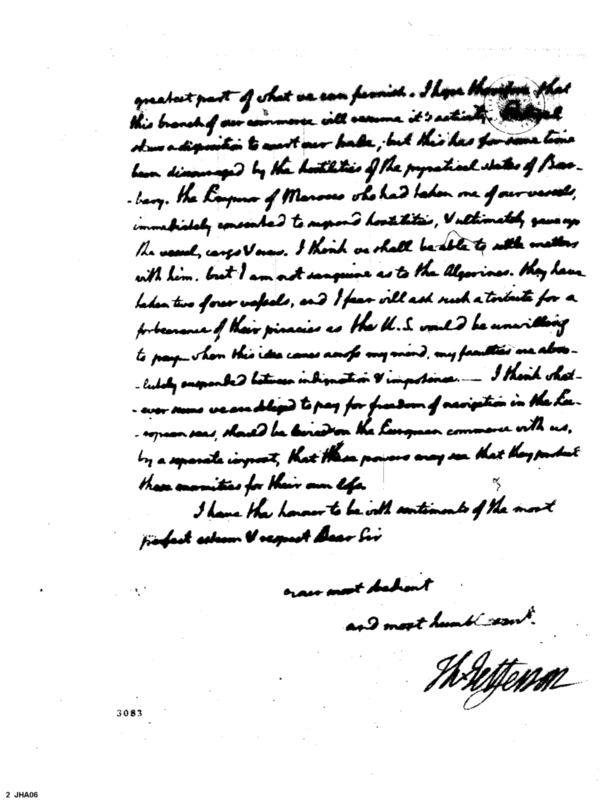 greatest part of what we can furnish. I hope therefore that
this branch of our commerce will resume it's activity. Portugal
shews a disposition to court our trade; but this has for some time
been discouraged by the hostilities of the pyratical states of Bar-
-bary. the Emperor of Marocco who had taken one of our vessels,
immediately consented to suspend hostilities, & ultimately gave up
the vessel, cargo & crew. I think we shall be able to settle matters
with him. but I am not sanguine as to the Algerines. they have
taken two of our vessels, and I fear will ask such a tribute for a
forbearance of their piracies as the U.S. would be unwilling
to pay. when this idea comes across my mind, my faculties are abso-
-lutely suspended between indignation & impotence. — I think what-
-ever sums we are obliged to pay for freedom of navigation in the Eu-
-ropean seas, should be levied on the European commerce with us,
by a separate impost, that these powers may see that they protect
these enormities for their own loss.
I have the honour to be with sentiments of the most
perfect esteem & respect Dear Sir
your most obedient
and most humble servt.
Th: Jefferson
3083
2 JHA06